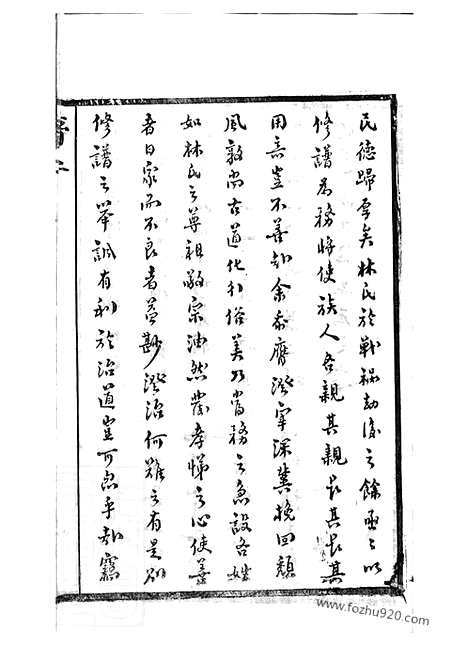 民德歸厚矣林氏於戰禍劫後之餘亟亟以
修譜為務將使族人各親其親長其長其
用意豈不善哉余忝膺澄宰深冀挽回頹
風敦尚古道化行俗美乃當務之急設各姓
如林氏之尊祖敬宗油然發孝悌之心使善
者日眾而不良者益尠澄治何難之有是則
修譜之舉誠有利於治道豈可忽乎哉竊
www.fozhu920.com